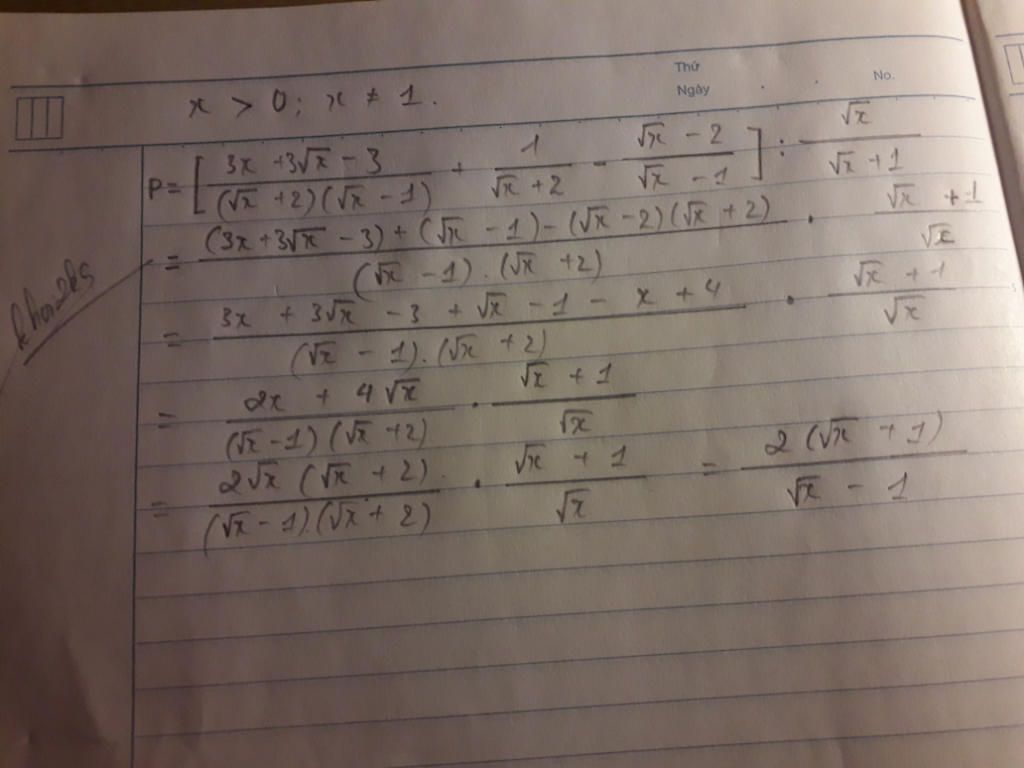 Thứ
No.
Ngày
x > 0; x ≠ 1.
P = [ (3x + 3√x - 3)/((√x + 2)(√x - 1)) + 1/(√x + 2) - (√x - 2)/(√x - 1) ] : √x/(√x + 1)
= ((3x + 3√x - 3) + (√x - 1) - (√x - 2)(√x + 2))/((√x - 1).(√x + 2)) . (√x + 1)/√x
= (3x + 3√x - 3 + √x - 1 - x + 4)/((√x - 1).(√x + 2)) . (√x + 1)/√x
= (2x + 4√x)/((√x - 1)(√x + 2)) . (√x + 1)/√x
= (2√x (√x + 2))/((√x - 1)(√x + 2)) . (√x + 1)/√x = (2(√x + 1))/(√x - 1)